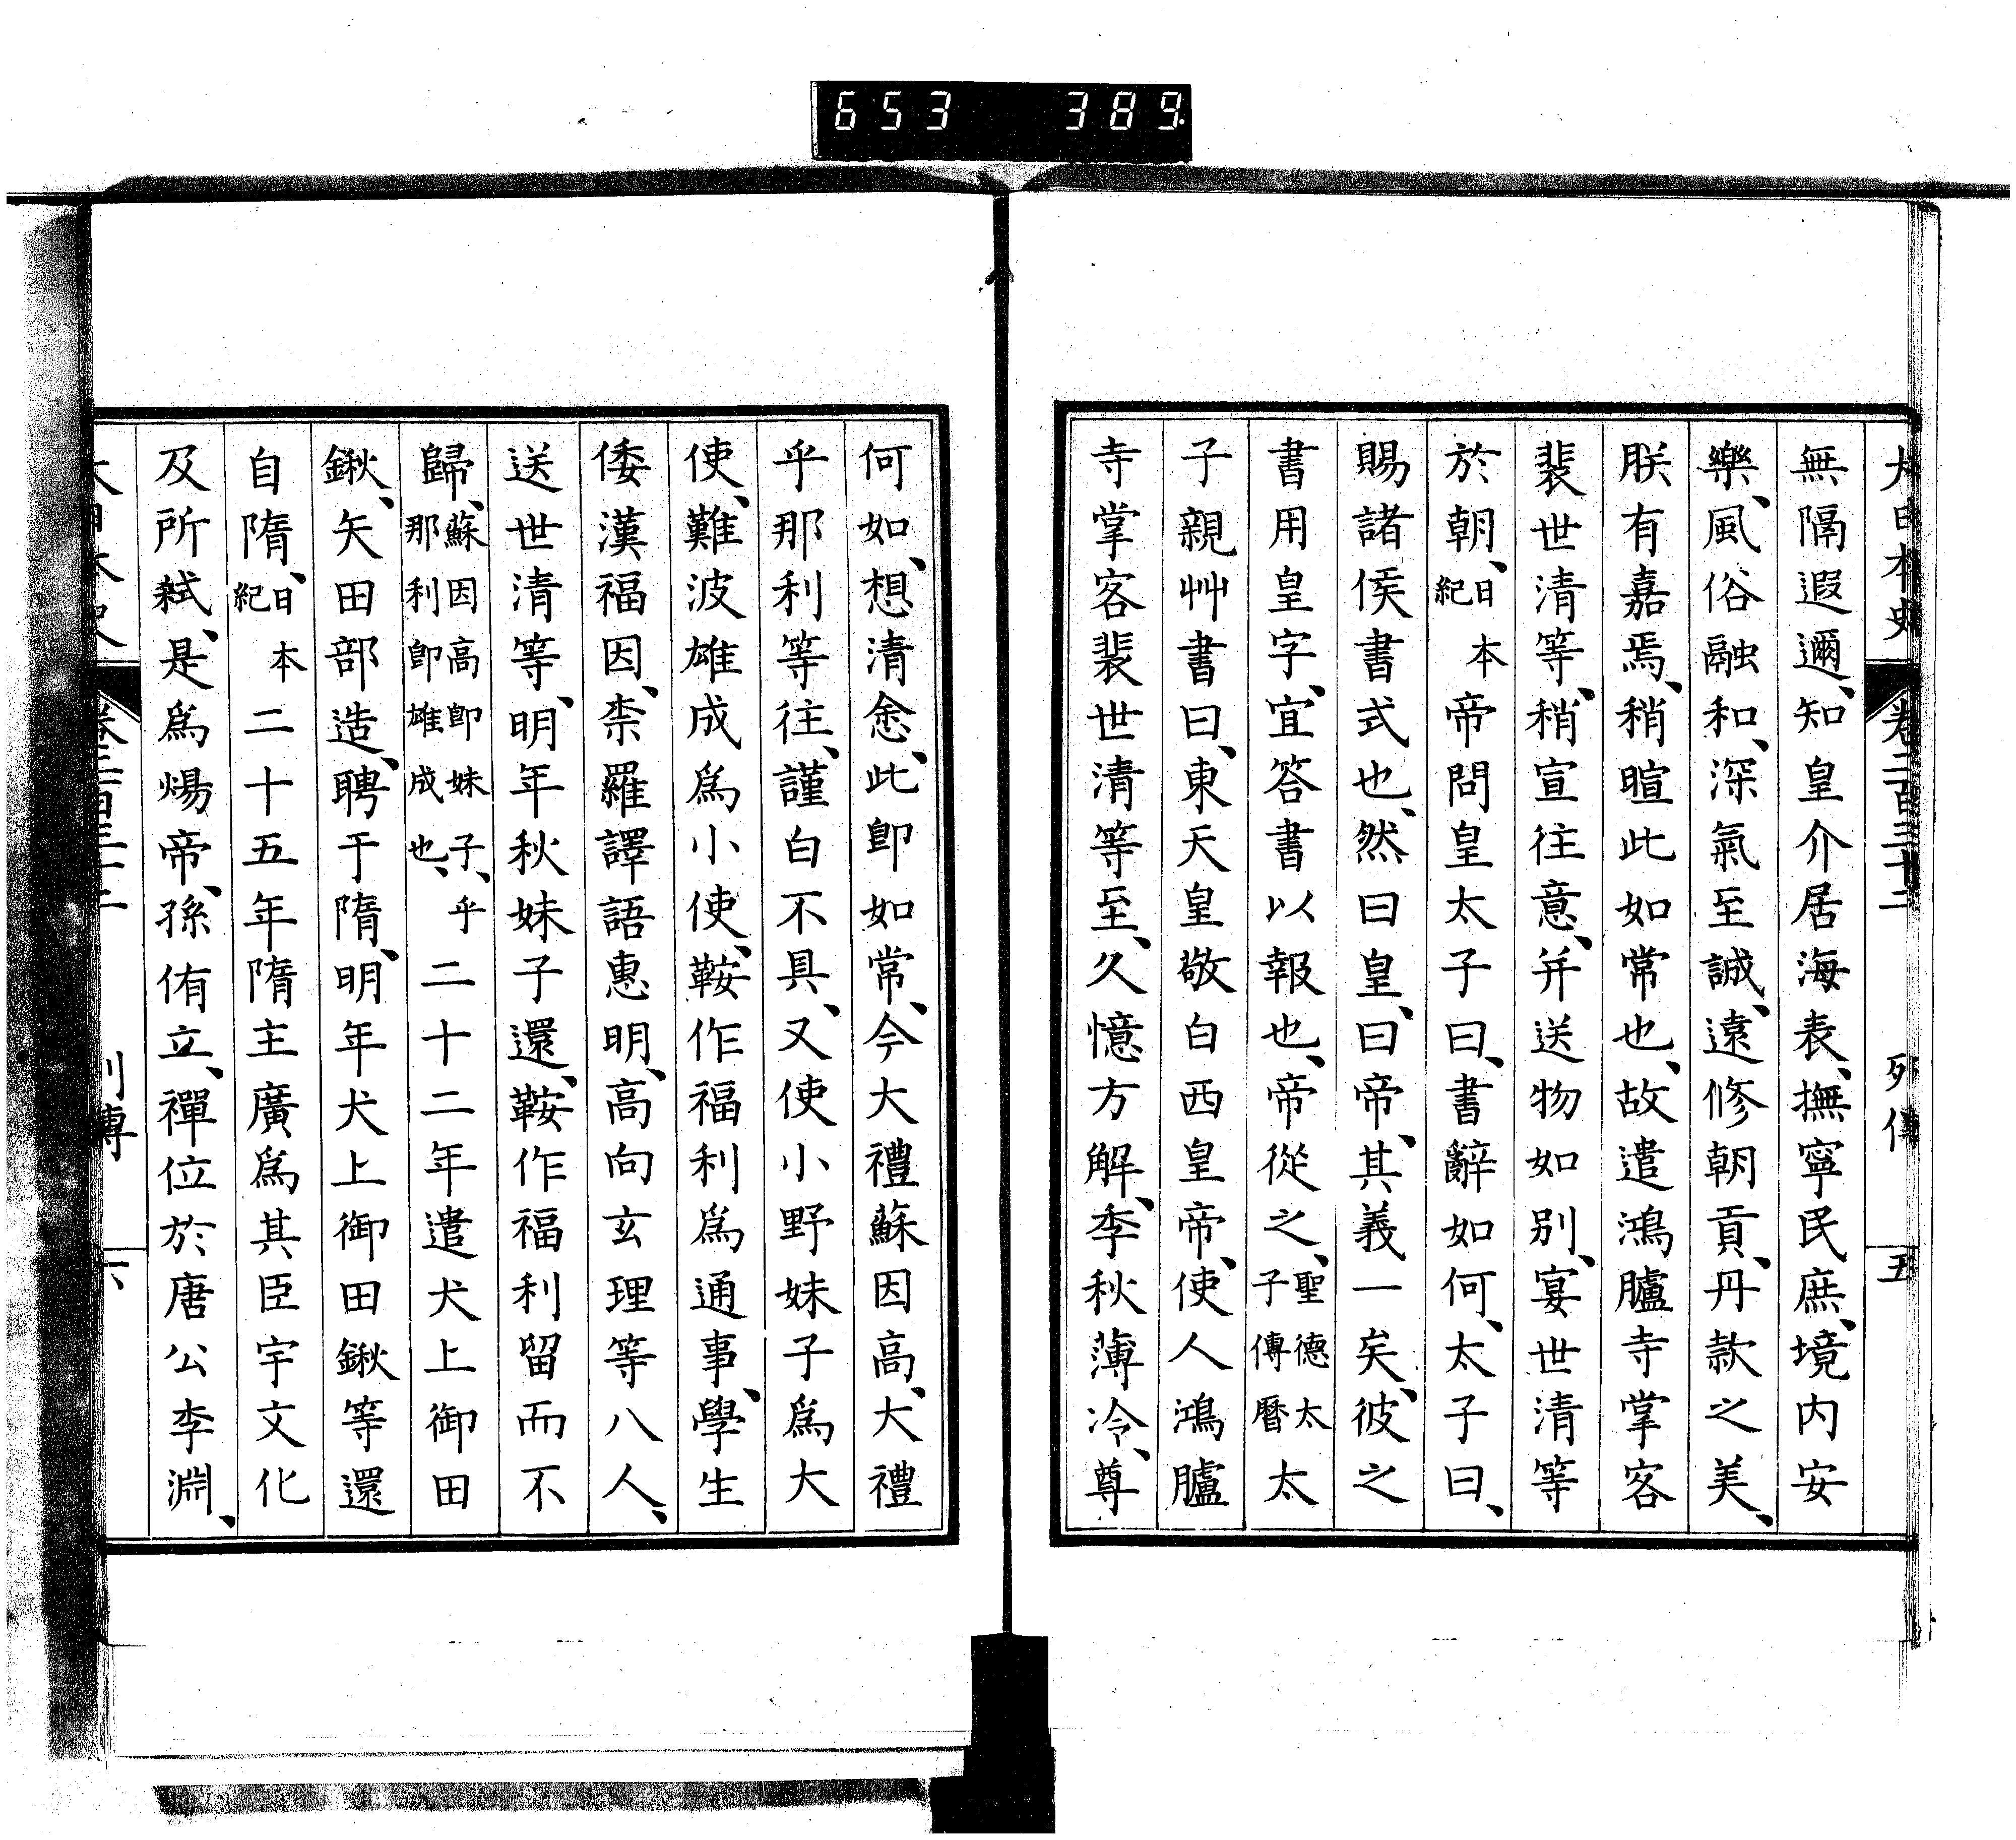 653 389
大日本史 卷二百三十二 列傳 五
無隔遐邇、知皇介居海表、撫寧民庶、境內安
樂、風俗融和、深氣至誠、遠修朝貢、丹款之美、
朕有嘉焉、稍暄此如常也、故遣鴻臚寺掌客
裴世清等、稍宣往意、幷送物如別、宴世清等
於朝、日本紀 帝問皇太子曰、書辭如何、太子曰、
賜諸侯書式也、然曰皇、曰帝、其義一矣、彼之
書用皇字、宜答書以報也、帝從之、聖德太子傳曆 太
子親艸書曰、東天皇敬白西皇帝、使人鴻臚
寺掌客裴世清等至、久憶方解、季秋薄冷、尊
何如、想清悆、此卽如常、今大禮蘇因高、大禮
乎那利等往、謹白不具、又使小野妹子爲大
使、難波雄成爲小使、鞍作福利爲通事、學生
倭漢福因、柰羅譯語惠明、高向玄理等八人、
送世清等、明年秋妹子還、鞍作福利留而不
歸、蘇因高卽妹子、乎那利卽雄成也、 二十二年遣犬上御田
鍬、矢田部造、聘于隋、明年犬上御田鍬等還
自隋、日本紀 二十五年隋主廣爲其臣宇文化
及所弒、是爲煬帝、孫侑立、禪位於唐公李淵、
大日本史 卷二百三十二 列傳 六